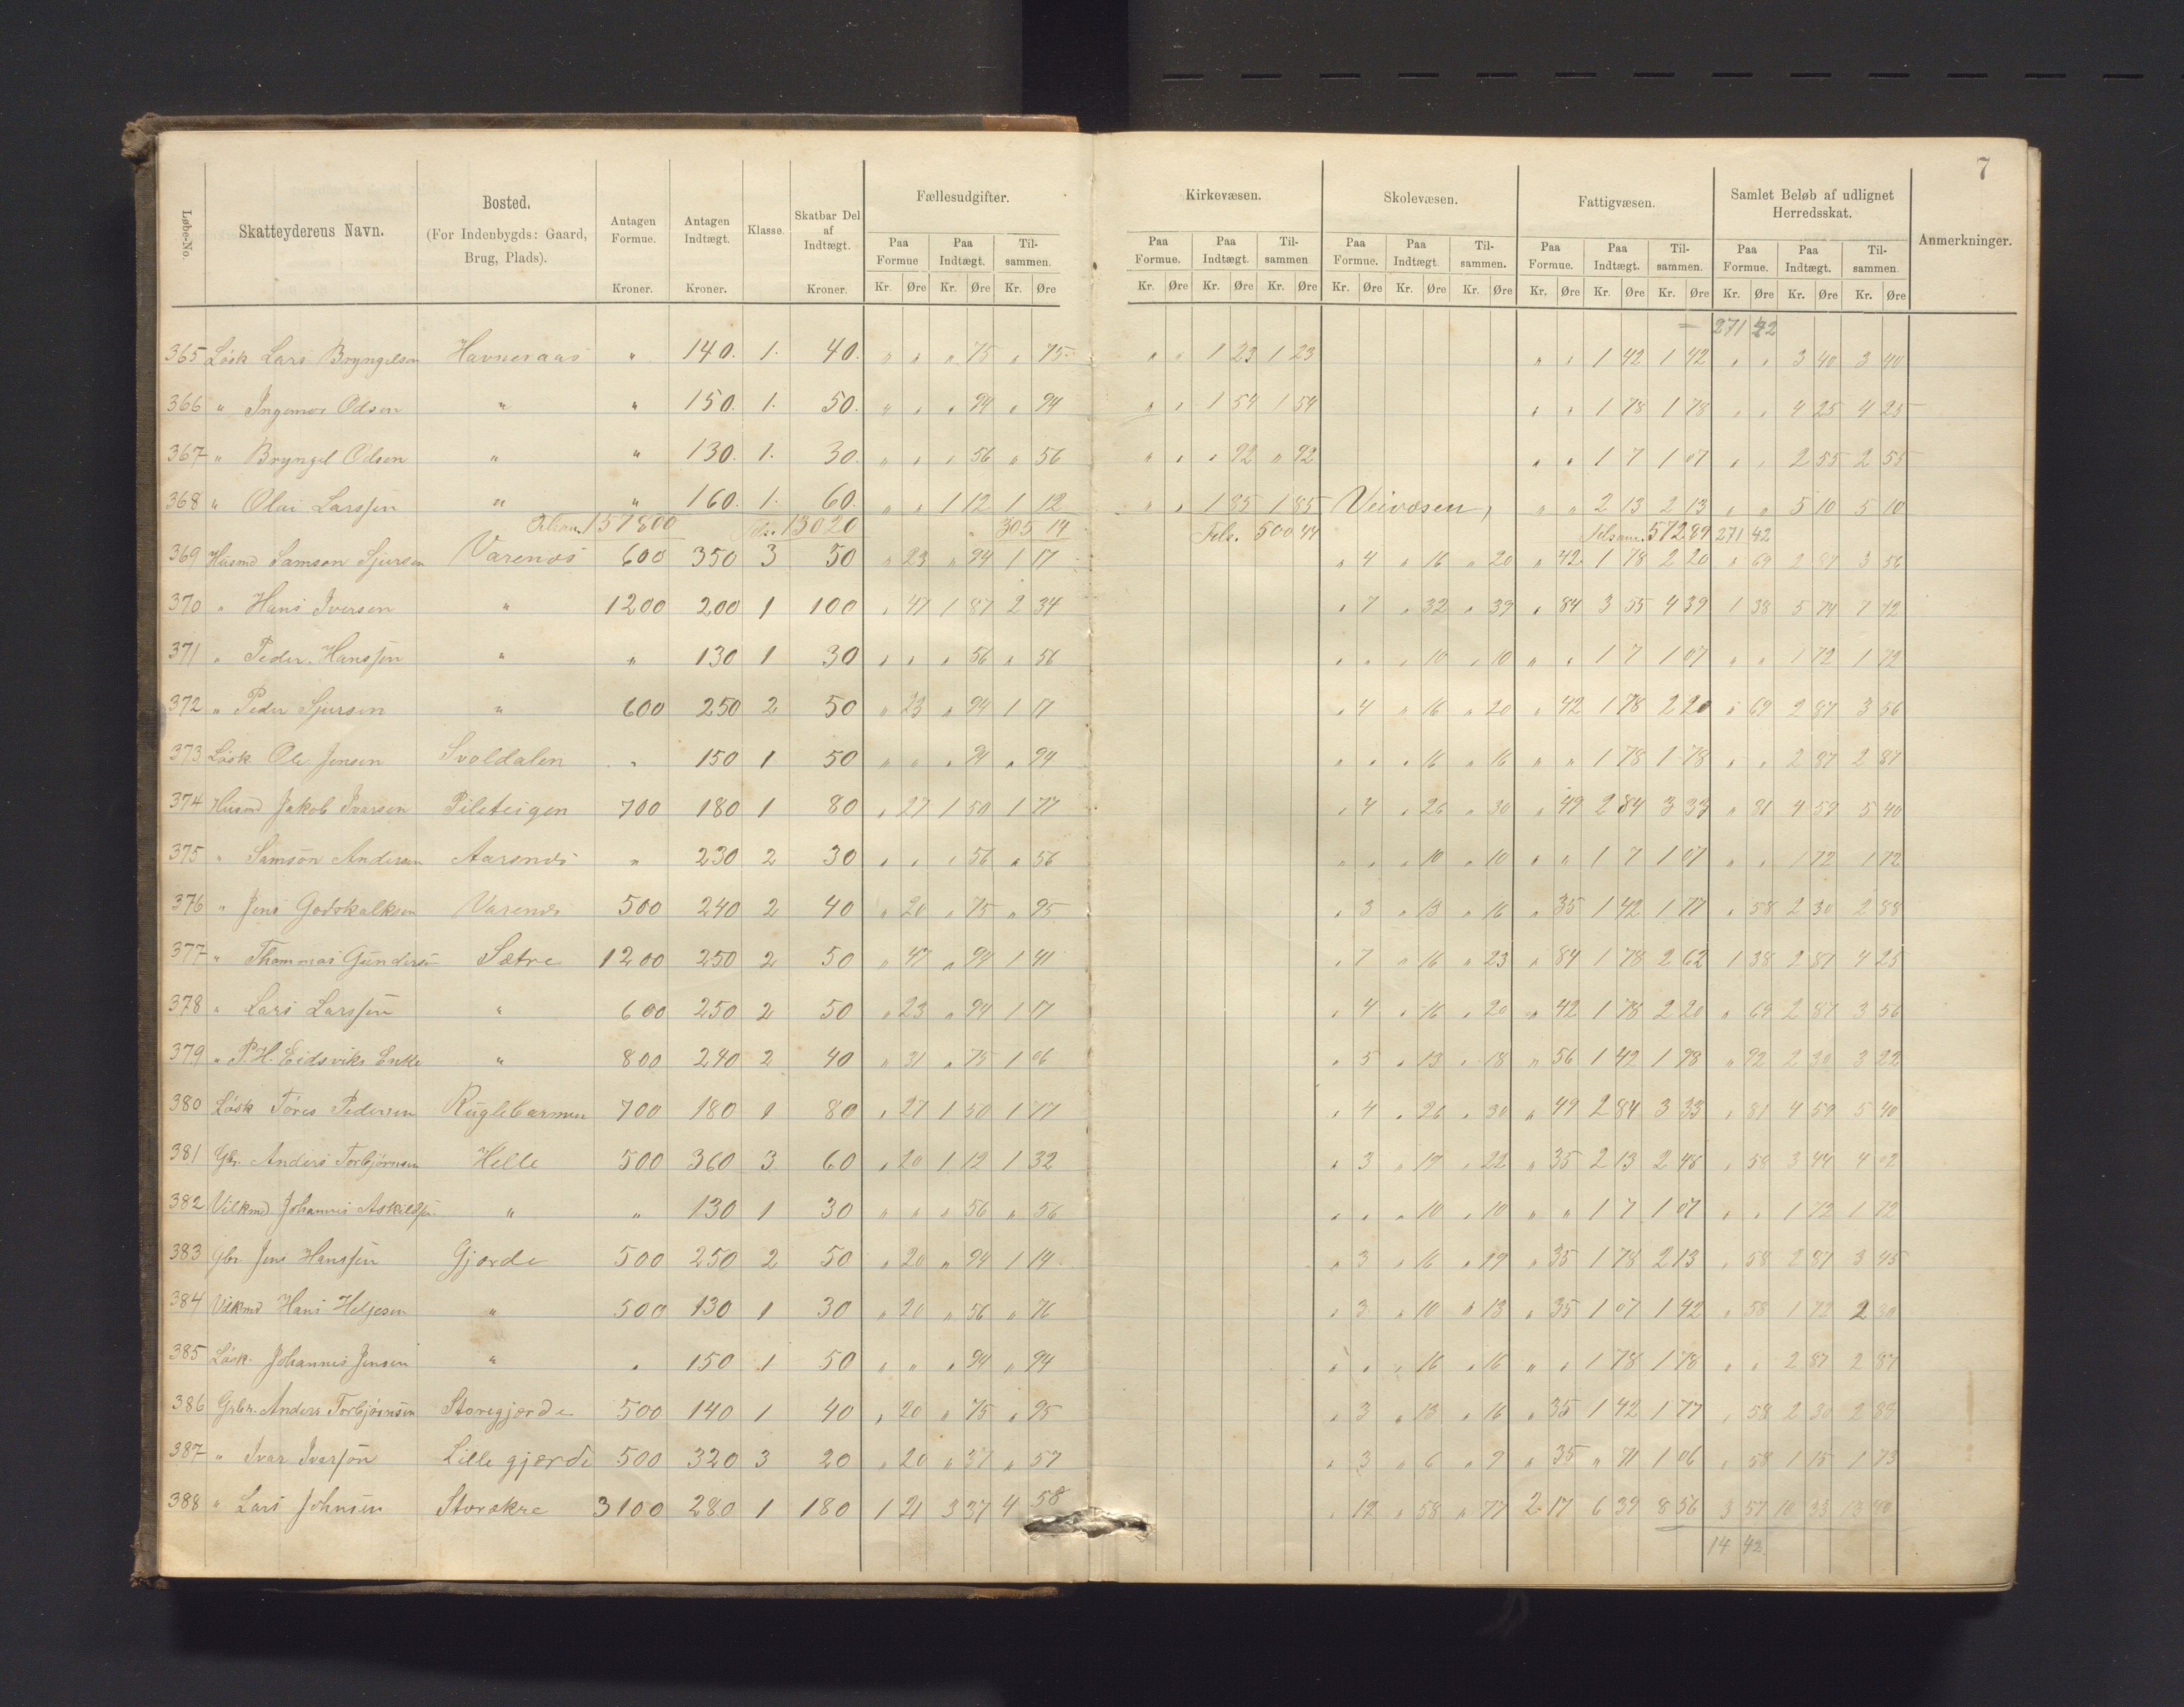 7
Løbe-No. Skatteyderens Navn. Bosted. (For Indenbygds: Gaard, Brug, Plads). Antagen Formue. Kroner. Antagen Indtægt. Kroner. Klasse. Skatbar Del af Indtægt. Kroner. Fællesudgifter. Kirkevæsen. Skolevæsen. Fattigvæsen. Samlet Beløb af udlignet Herredsskat. Anmerkninger.
Paa Formue Paa Indtægt. Til- sammen. Paa Formue. Paa Indtægt. Til- sammen Paa Formue. Paa Indtægt. Til- sammen. Paa Formue. Paa Indtægt. Til- sammen. Paa Formue. Paa Indtægt. Til- sammen.
Kr. Øre Kr. Øre Kr. Øre Kr. Øre Kr. Øre Kr. Øre Kr. Øre Kr. Øre Kr. Øre Kr. Øre Kr. Øre Kr. Øre Kr. Øre Kr. Øre Kr. Øre
271 42
365 Løsk Lars Bryngelsen Havneraas " 140. 1. 40. " " " 75 " 75 " " 1 23 1 23 " " 1 42 1 42 " " 3 40 3 40
366 " Ingemar Odsen " " 150. 1. 50. " " " 94 " 94 " " 1 54 1 54 " " 1 78 1 78 " " 4 25 4 25
367 " Bryngel Odsen " " 130. 1. 30. " " " 56 " 56 " " " 92 " 92 " " 1 7 1 07 " " 2 55 2 55
368 " Olai Larssen " " 160. 1. 60. " " 1 12 1 12 " " 1 85 1 85 Veivæsen, " " 2 13 2 13 " " 5 10 5 10
157800 13020 305 14 Tils. 500 44 Tilsam. 572 89 271 42
369 Husmd Samson Sjursen Varenes 600 350 3 50 " 23 " 94 1 17 " 4 " 16 " 20 " 42 1 78 2 20 " 69 2 87 3 56
370 " Hans Iversen " 1200 200 1 100 " 47 1 87 2 34 " 7 " 32 " 39 " 84 3 55 4 39 1 38 5 74 7 12
371 " Peder Hanssen " " 130 1 30 " " " 56 " 56 " " " 10 " 10 " " 1 7 1 07 " " 1 72 1 72
372 " Peder Sjursen " 600 250 2 50 " 23 " 94 1 17 " 4 " 16 " 20 " 42 1 78 2 20 " 69 2 87 3 56
373 Løsk Ole Jensen Svoldalen " 150 1 50 " " " 94 " 94 " " " 16 " 16 " " 1 78 1 78 " " 2 87 2 87
374 Husmd Jakob Ivarsen Pileteigen 700 180 1 80 " 27 1 50 1 77 " 4 " 26 " 30 " 49 2 84 3 33 " 81 4 59 5 40
375 " Samson Andersen Aarsnes " 230 2 30 " " " 56 " 56 " " " 10 " 10 " " 1 7 1 07 " " 1 72 1 72
376 " Jens Godskalksen Varenes 500 240 2 40 " 20 " 75 " 95 " 3 " 13 " 16 " 35 1 42 1 77 " 58 2 30 2 88
377 " Thommas Gundersen Sætre 1200 250 2 50 " 47 " 94 1 41 " 7 " 16 " 23 " 84 1 78 2 62 1 38 2 87 4 25
378 " Lars Larssen " 600 250 2 50 " 23 " 94 1 17 " 4 " 16 " 20 " 42 1 78 2 20 " 69 2 87 3 56
379 " P.H. Eidsviks Enke " 800 240 2 40 " 31 " 75 1 06 " 5 " 13 " 18 " 56 1 42 1 98 " 92 2 30 3 22
380 Løsk Tóres Pedersen Ruglebarmen 700 180 1 80 " 27 1 50 1 77 " 4 " 26 " 30 " 49 2 84 3 33 " 81 4 59 5 40
381 Gbr. Anders Torbjørnsen Hille 500 360 3 60 " 20 1 12 1 32 " 3 " 19 " 22 " 35 2 13 2 48 " 58 3 44 4 02
382 Vilkmd Johannes Askildsen " " 130 1 30 " " " 56 " 56 " " " 10 " 10 " " 1 7 1 07 " " 1 72 1 72
383 Gbr Jens Hanssen Gjærde 500 250 2 50 " 20 " 94 1 14 " 3 " 16 " 19 " 35 1 78 2 13 " 58 2 87 3 45
384 Vilkmd Hans Helgesen " 500 130 1 30 " 20 " 56 " 76 " 3 " 10 " 13 " 35 1 07 1 42 " 58 1 72 2 30
385 Løsk. Johannes Jensen " " 150 1 50 " " " 94 " 94 " " " 16 " 16 " " 1 78 1 78 " " 2 87 2 87
386 Grbr. Anders Torbjørnsen Storegjærde 500 140 1 40 " 20 " 75 " 95 " 3 " 13 " 16 " 35 1 42 1 77 " 58 2 30 2 88
387 " Ivar Ivarson Lillegjærde 500 320 3 20 " 20 " 37 " 57 " 3 " 6 " 9 " 35 " 71 1 06 " 58 1 15 1 73
388 " Lars Johnsen Storækre 3100 280 1 180 1 21 3 37 4 58 " 19 " 58 " 77 2 17 6 39 8 56 3 57 10 33 13 90
14 42